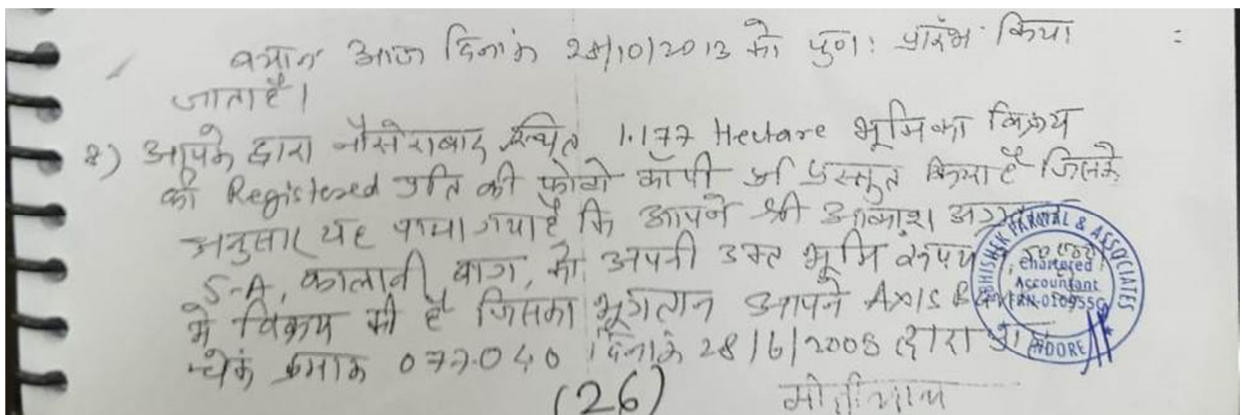 बयान आज दिनांक 28/10/2013 को पुण: प्रारंभ किया :
जाता है।
8) आपके द्वारा नौसेराबाद स्थित 1.177 Hectare भूमि का विक्रय
की Registered प्रति की फोटो कॉपी प्रस्तुत किया है जिसके
अनुसार यह पाया गया है कि आपने श्री आकाश अग्रवाल
5-A, कालानी बाग, को अपनी उक्त भूमि
मे विक्रय की है जिसका भूगतान आपने AXIS BANK
चेक क्रमांक 077040 दिनांक 28/6/2008 द्वारा
(26)
ABHISHEK PARWAL & ASSOCIATES
Chartered
Accountant
FRN-010955C
INDORE